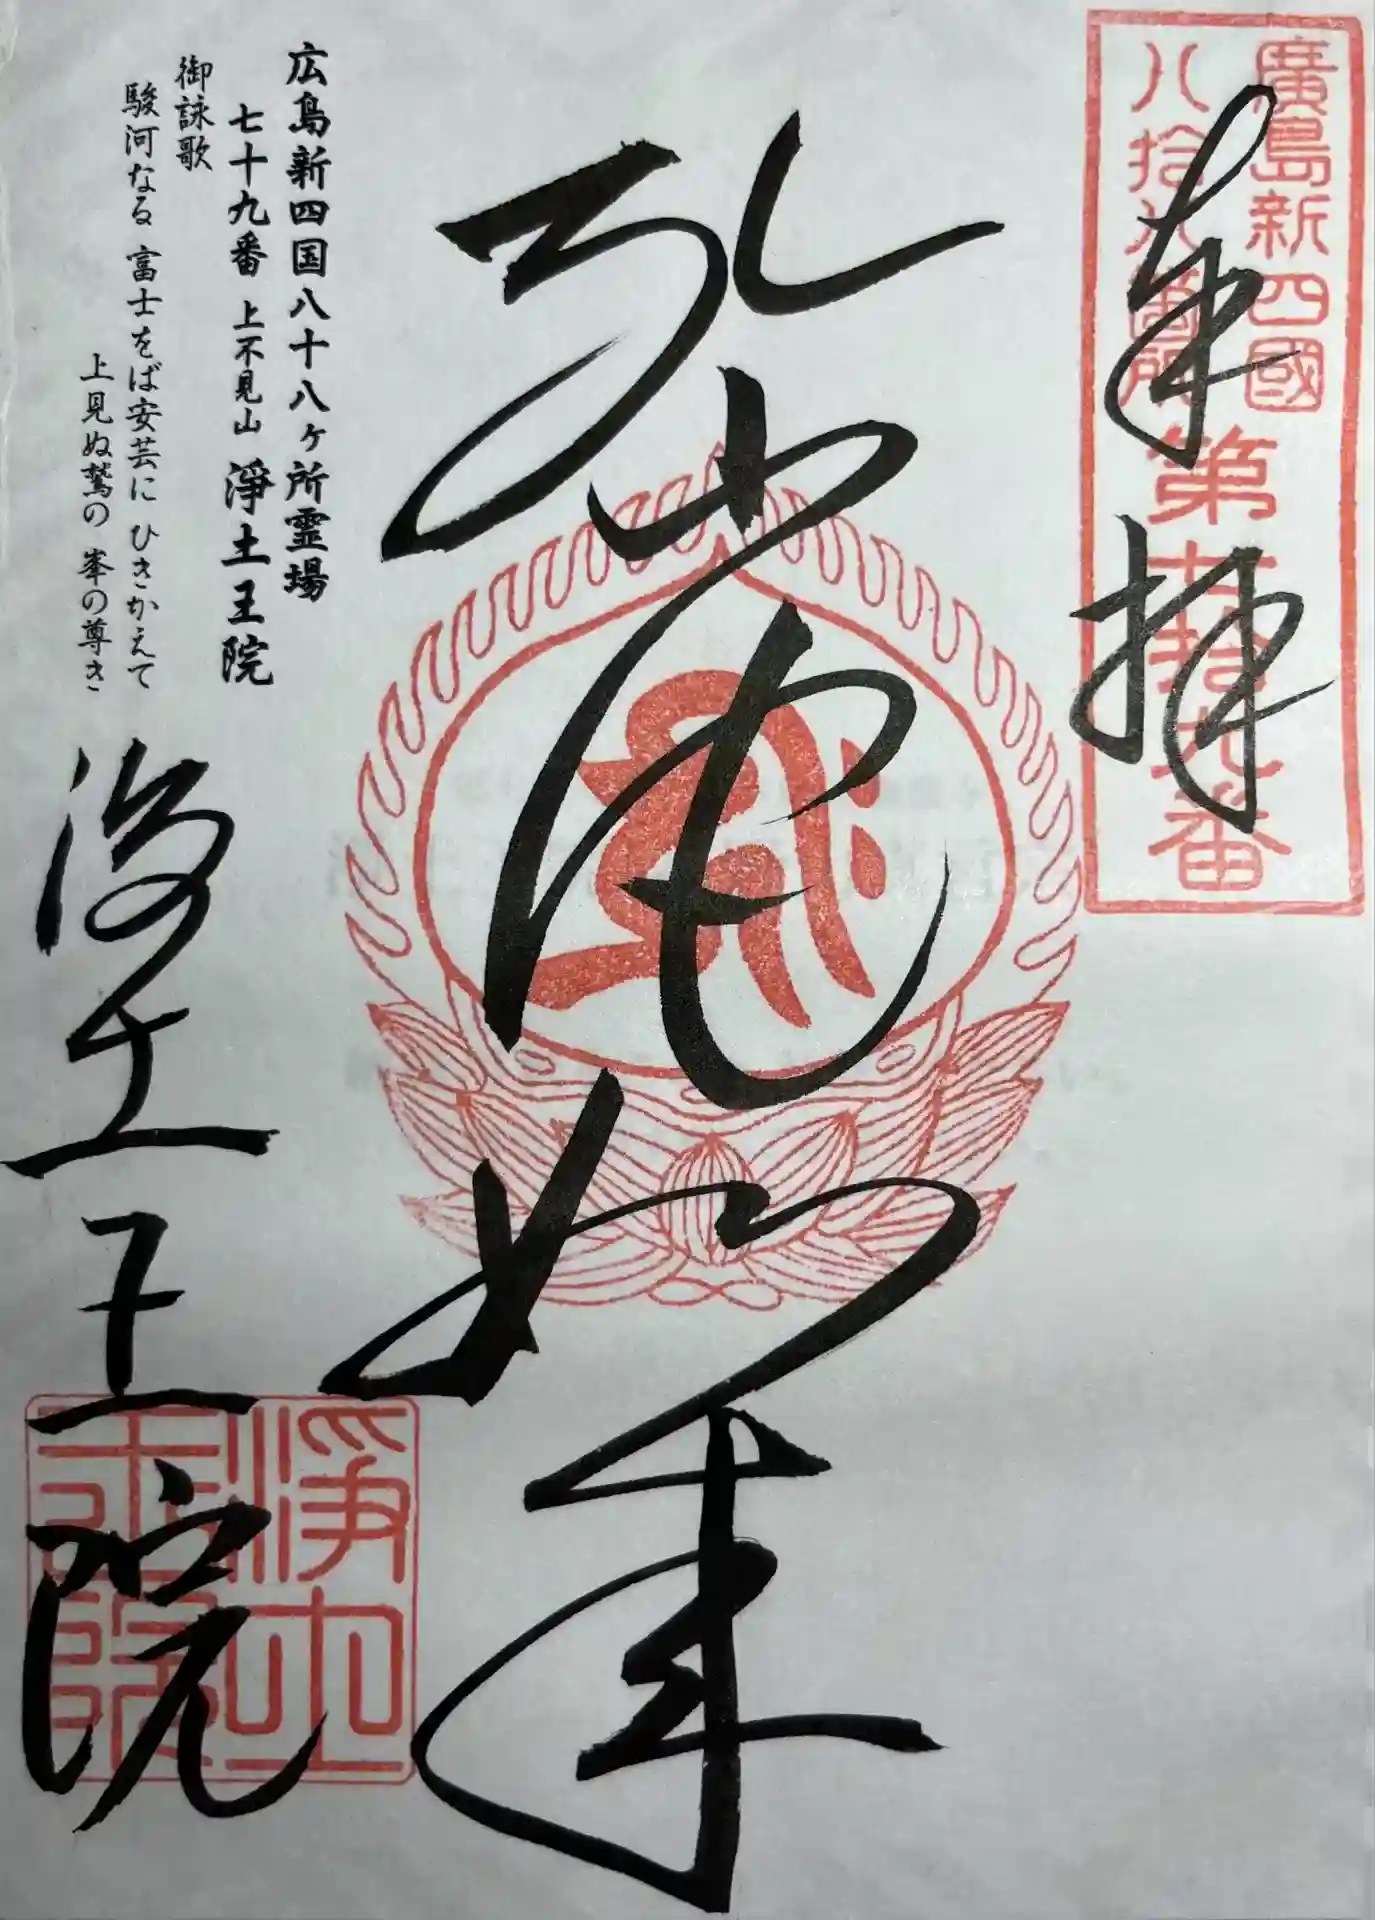 奉拝
廣島新四國
八拾八箇所
第七拾九番
弥陀如来
広島新四国八十八ヶ所霊場
七十九番 上不見山 淨土王院
御詠歌
駿河なる 富士をば安芸に ひきかえて
上見ぬ鷲の 峯の尊き
淨土王院
淨土
王院